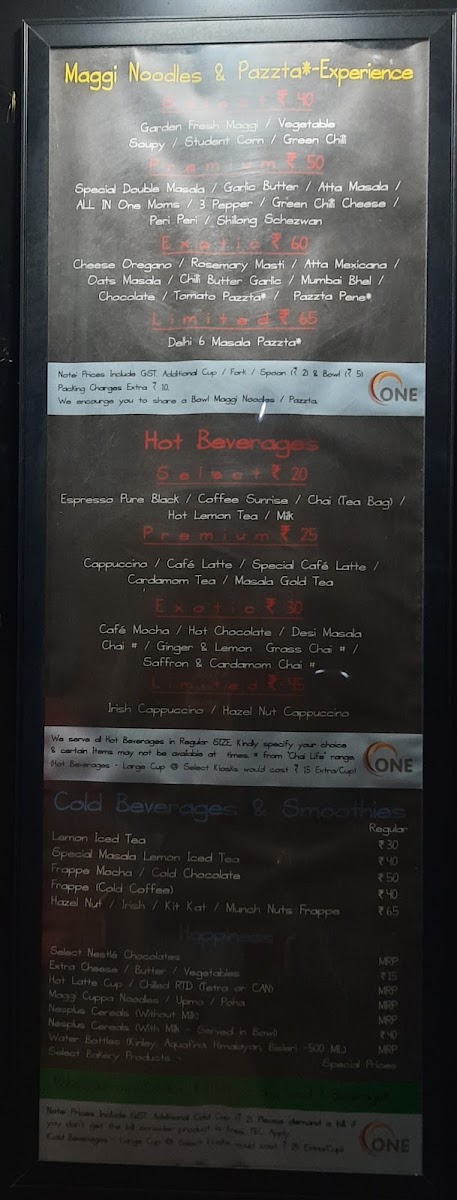 Maggi Noodles & Pazzta*-Experience
Select ₹ 40
Garden Fresh Maggi / Vegetable
Soupy / Student Corn / Green Chilli
Premium ₹ 50
Special Double Masala / Garlic Butter / Atta Masala /
ALL IN One Moms / 3 Pepper / Green Chilli Cheese /
Peri Peri / Shilong Schezwan
Exotic ₹ 60
Cheese Oregano / Rosemary Masti / Atta Mexicana /
Oats Masala / Chilli Butter Garlic / Mumbai Bhel /
Chocolate / Tomato Pazzta* / Pazzta Pene*
Limited ₹ 65
Delhi 6 Masala Pazzta*
Note: Prices Include GST. Additional Cup / Fork / Spoon (₹ 2) & Bowl (₹ 5)
Packing Charges Extra ₹ 10.
We encourge you to share a Bowl Maggi Noodles / Pazzta.
ONE
Hot Beverages
Select ₹ 20
Espresso Pure Black / Coffee Sunrise / Chai (Tea Bag) /
Hot Lemon Tea / Milk
Premium ₹ 25
Cappuccino / Café Latte / Special Café Latte /
Cardamom Tea / Masala Gold Tea
Exotic ₹ 30
Café Mocha / Hot Chocolate / Desi Masala
Chai # / Ginger & Lemon Grass Chai # /
Saffron & Cardamom Chai #
Limited ₹ 45
Irish Cappuccino / Hazel Nut Cappuccino
We serve all Hot Beverages in Regular SIZE. Kindly specify your choice
& certain Items may not be available at times. # from "Chai Life" range.
(Hot Beverages - Large Cup @ Select Kiosks would cost ₹ 15 Extra/Cup)
ONE
Cold Beverages & Smoothies
Regular
Lemon Iced Tea ₹ 30
Special Masala Lemon Iced Tea ₹ 40
Frappe Mocha / Cold Chocolate ₹ 50
Frappe (Cold Coffee) ₹ 40
Hazel Nut / Irish / Kit Kat / Munch Nuts Frappe ₹ 65
Happiness
Select Nestlé Chocolates MRP
Extra Cheese / Butter / Vegetables ₹ 15
Hot Latte Cup / Chilled RTD (Tetra or CAN) MRP
Maggi Cuppa Noodles / Upma / Poha MRP
Nesplus Cereals (Without Milk) MRP
Nesplus Cereals (With Milk - Served in Bowl) ₹ 40
Water Bottles (Kinley, Aquafina, Himalayan, Bisleri -500 ML) MRP
Select Bakery Products - Special Prices
Note: Prices Include GST. Additional Cold Cup ₹ 2. Please demand a bill, if
you don't get the bill consider product is free. T&C Apply.
(Cold Beverages - Large Cup @ Select Kiosks would cost ₹ 15 Extra/Cup)
ONE